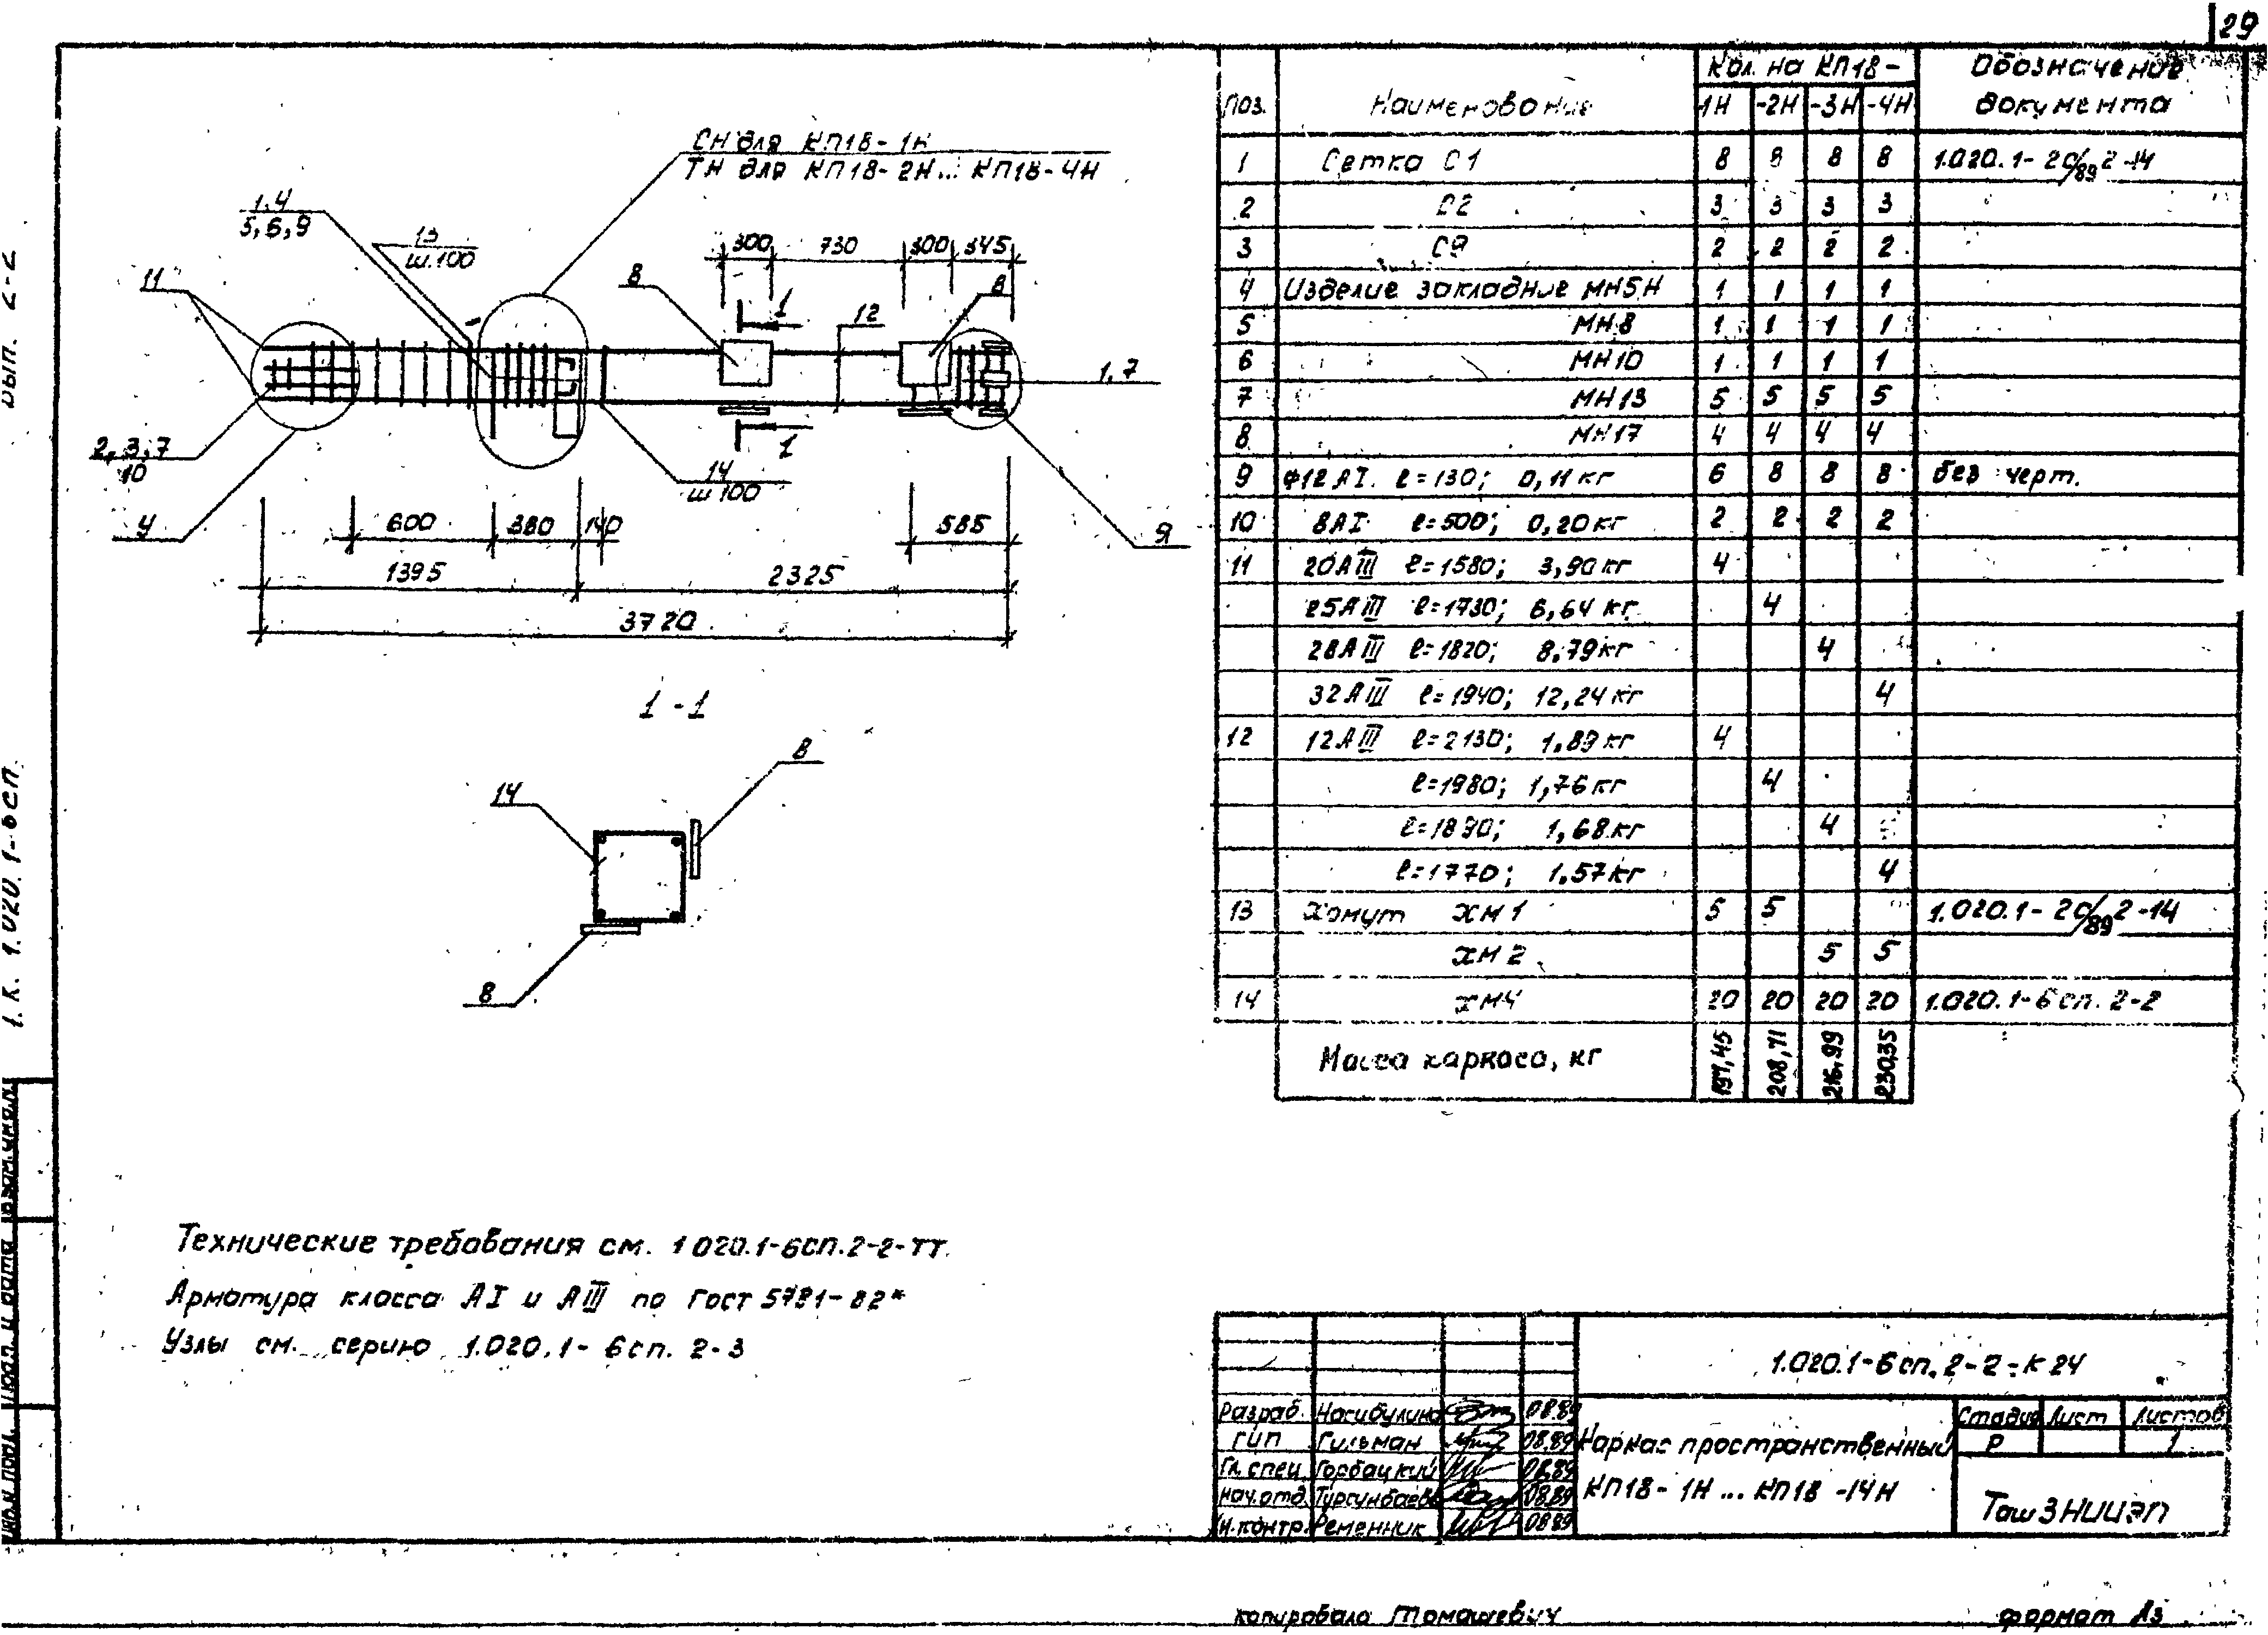 29
СН для КП18-1Н
ТН для КП18-2Н... КП18-4Н
1.4
5,6,9
13
ш.100
11
8
300
730
300
345
8
1
12
1,7
2,3,7
10
1
14
ш 100
У
600
380
140
585
Я
1395
2325
3720
1-1
14
8
8
Технические требования см. 1 020.1-6СП.2-2-ТТ.
Арматура класса АI и АIII по Гост 5781-82*
Узлы см. серию 1.020.1-6сп. 2-3
Поз. Наименование Кол. на КП18- Обозначение документа
1Н -2Н -3Н -4Н
1 Сетка С1 8 8 8 8 1.020.1-2С/89 2-14
2 С2 3 3 3 3
3 С9 2 2 2 2
4 Изделие закладние МН5Н 1 1 1 1
5 МН8 1 1 1 1
6 МН10 1 1 1 1
7 МН13 5 5 5 5
8 МН17 4 4 4 4
9 Ф12АI. ℓ=130; 0,11кг 6 8 8 8 без черт.
10 8АI ℓ=500; 0,20кг 2 2 2 2
11 20АIII ℓ=1580; 3,90кг 4
25АIII ℓ=1730; 6,64 кг 4
28АIII ℓ=1820; 8,79кг 4
32АIII ℓ=1940; 12,24кг 4
12 12АIII ℓ=2130; 1,89кг 4
ℓ=1980; 1,76кг 4
ℓ=1890; 1,68кг 4
ℓ=1770; 1,57кг 4
13 Хомут ХМ1 5 5 1.020.1-2С/89 2-14
ХМ2 5 5
14 ХМ4 20 20 20 20 1.020.1-6сп. 2-2
Масса каркаса, кг 197,45 208,71 216,99 230,35
1.020.1-6сп. 2-2-К24
Разраб. Насибулина 08.89
ГИП Гильман 08.89
Гл. спец. Горбацкий 08.89
Нач.отд. Турсунбаев 08.89
Н.контр. Ременник 0889
Каркас пространственный
КП18-1Н ... КП18-14Н
Стадия Лист Листов
Р 1
ТашЗНИИЭП
копировала Томашевич
формат А3
вып. 2-2
1.020.1-6сп